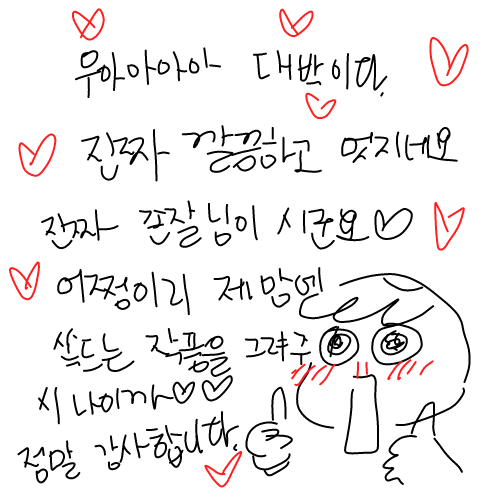 우아아아아 대박이다,
진짜 깔끔하고 멋지네요
진짜 존잘님이 시군요♡
어쩜이리 제맘엔
쏙드는 작품을 그려주
시나이까♡♡
정말 감사합니다,